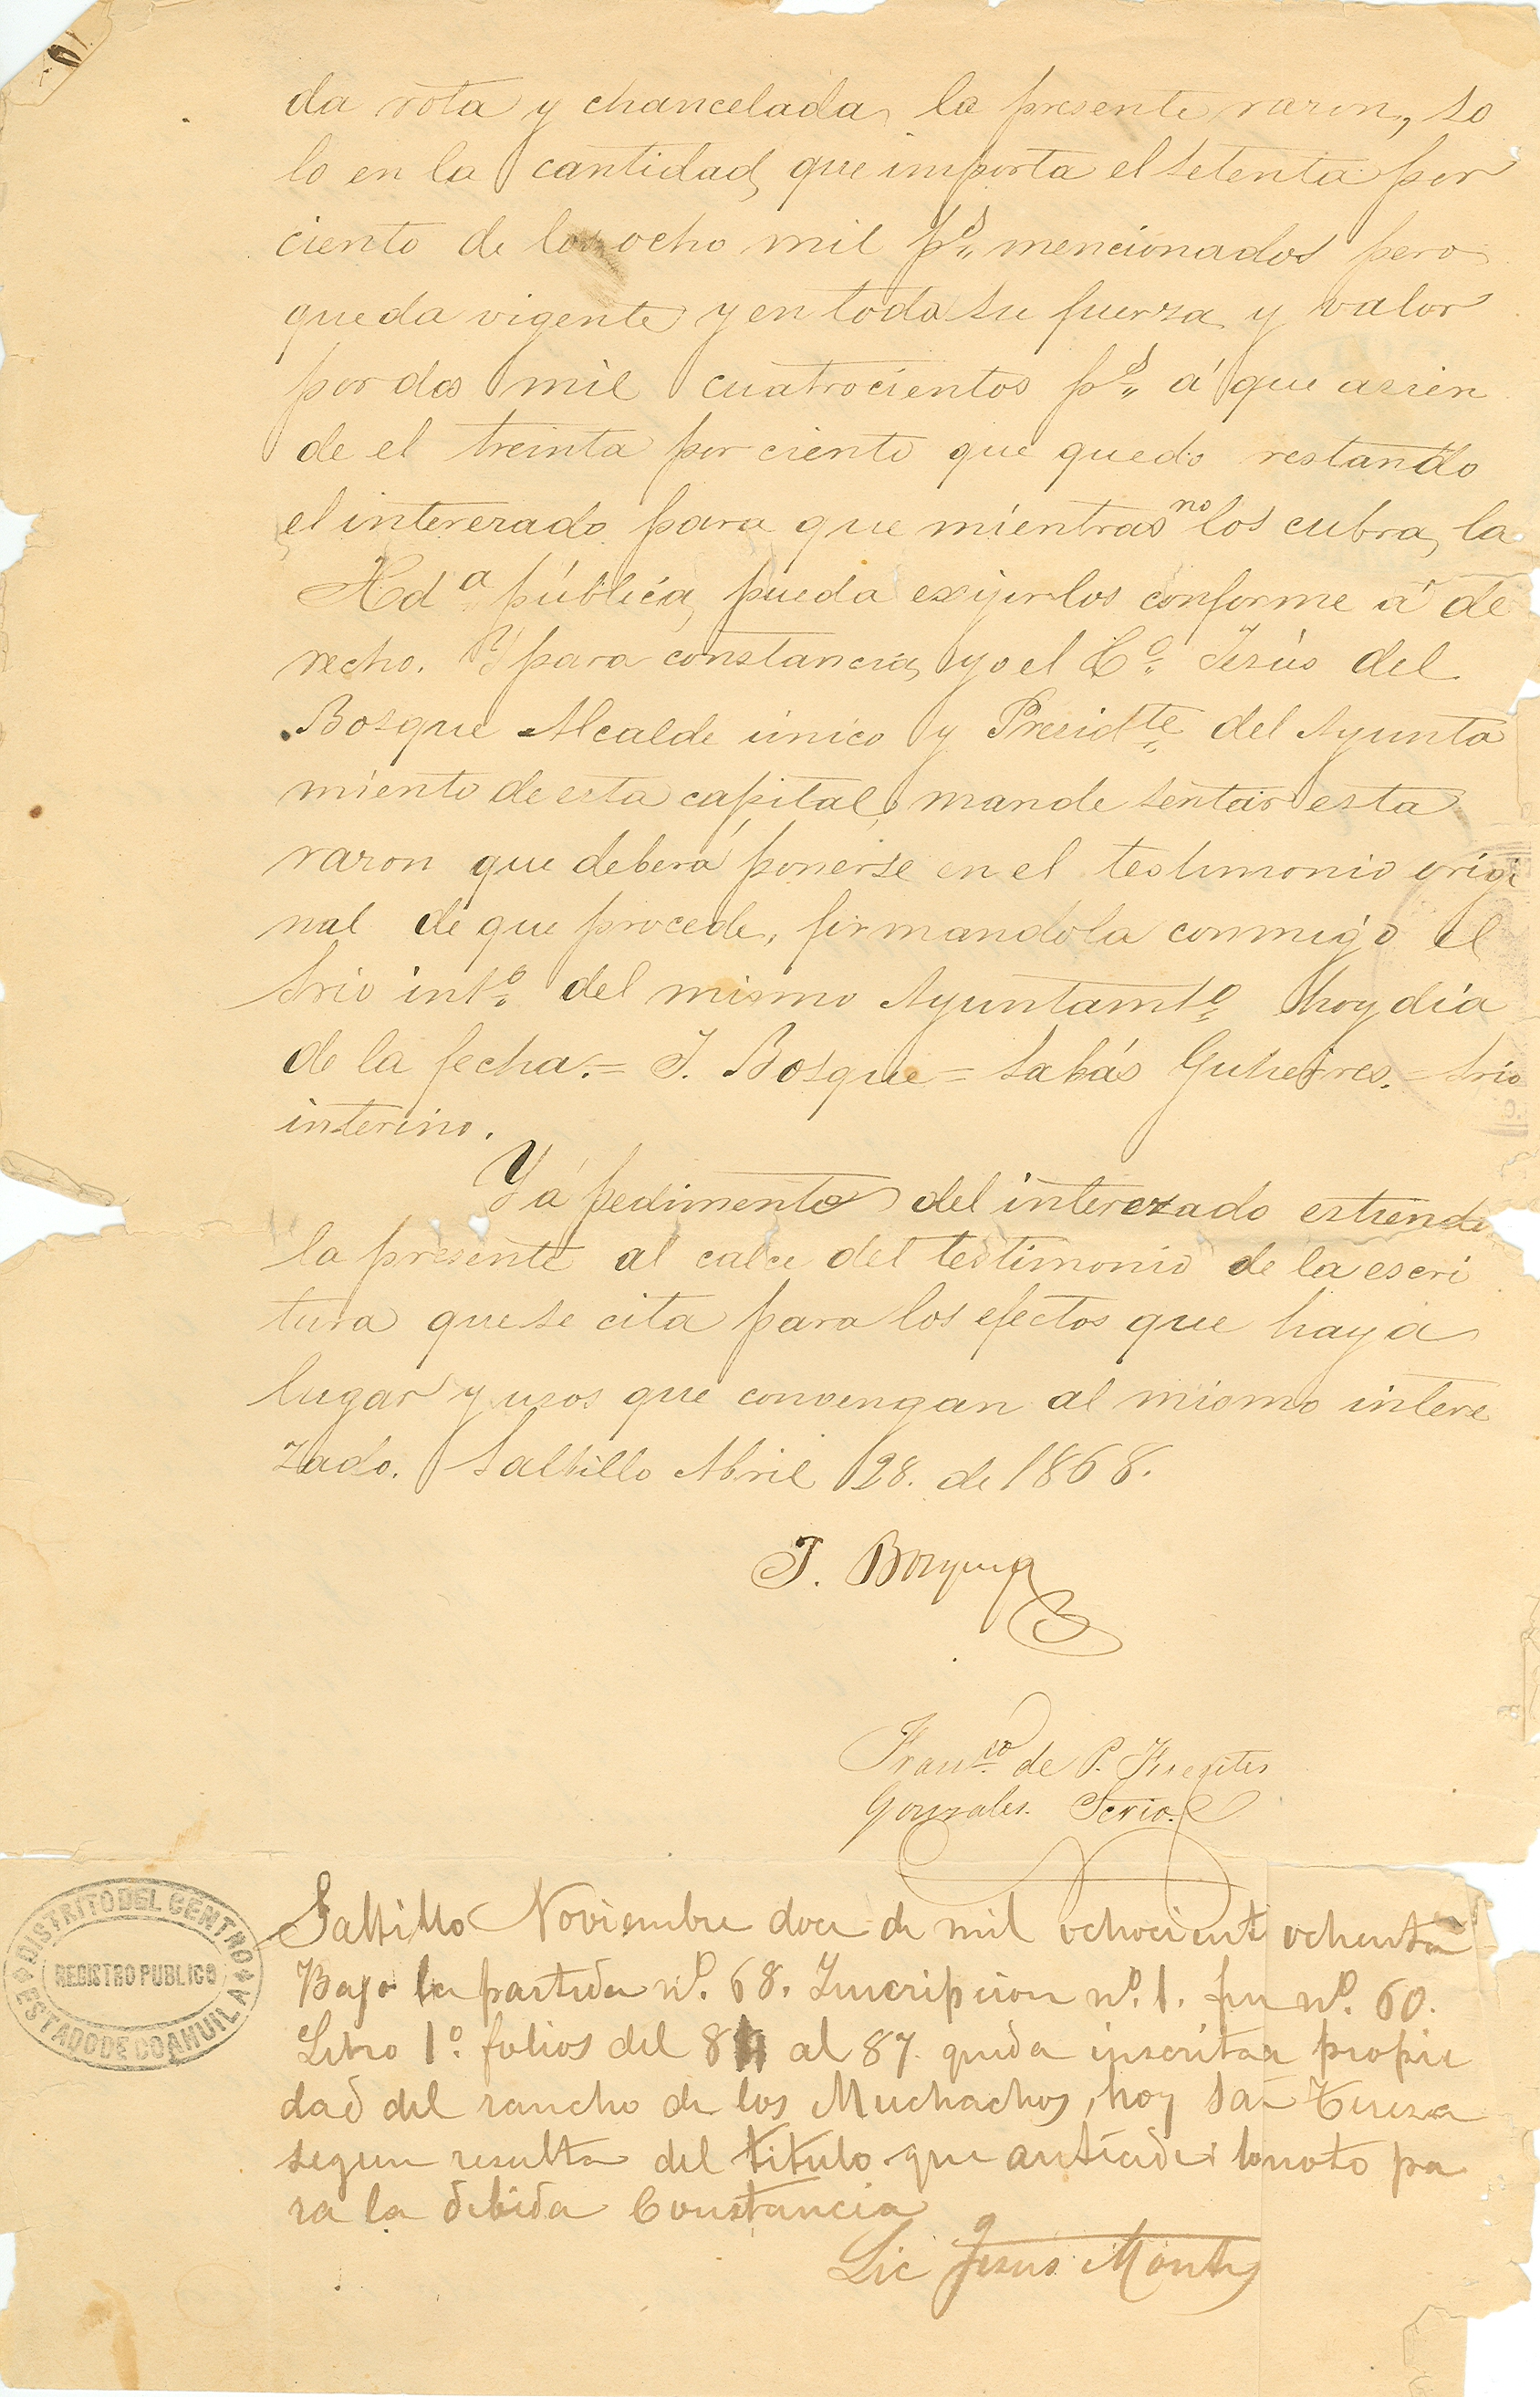 da rota y chancelada la presente razon, so
lo en la cantidad que importa el setenta por
ciento de los ocho mil p.s mencionados pero
queda vigente y en toda su fuerza y valor
por dos mil cuatrocientos p.s á que asien
de el treinta por ciento que quedo restando
el interezado para que mientras no los cubra, la
Hd.a pública pueda exijirlos conforme á de
recho. Y para constancia yo el C.o Jesús del
Bosque Alcalde único y Presid.te del Ayunta
miento de esta capital, mande sentar esta
razon que deberá ponerse en el testimonio origi
nal de que procede, firmandola conmigo el
Srio int.o del mismo Ayuntamt.o hoy dia
de la fecha.= J. Bosque = Sabás Gutierres. = Srio
interino.
Y á pedimento del interezado estiendo
la presente al calce del testimonio de la escri
tura que se cita para los efectos que haya
lugar y usos que convengan al mismo intere
zado. Saltillo Abril 28. de 1868.
J. Bosque
Fran.co de P. Fuentes
Gonzales. Scrio.
DISTRITO DEL CENTRO
REGISTRO PUBLICO
ESTADO DE COAHUILA
Saltillo Noviembre doce de mil ochocient ochenta
Bajo la partida nº. 68. Inscripcion nº. 1. fin nº. 60.
Libro 1º. folios del 84 al 87. queda inscrita propie
dad del rancho de los Muchachos, hoy Sa Tereza
segun resulta del titulo que antecede lo noto pa
ra la debida Constancia
Lic Jesus Montes